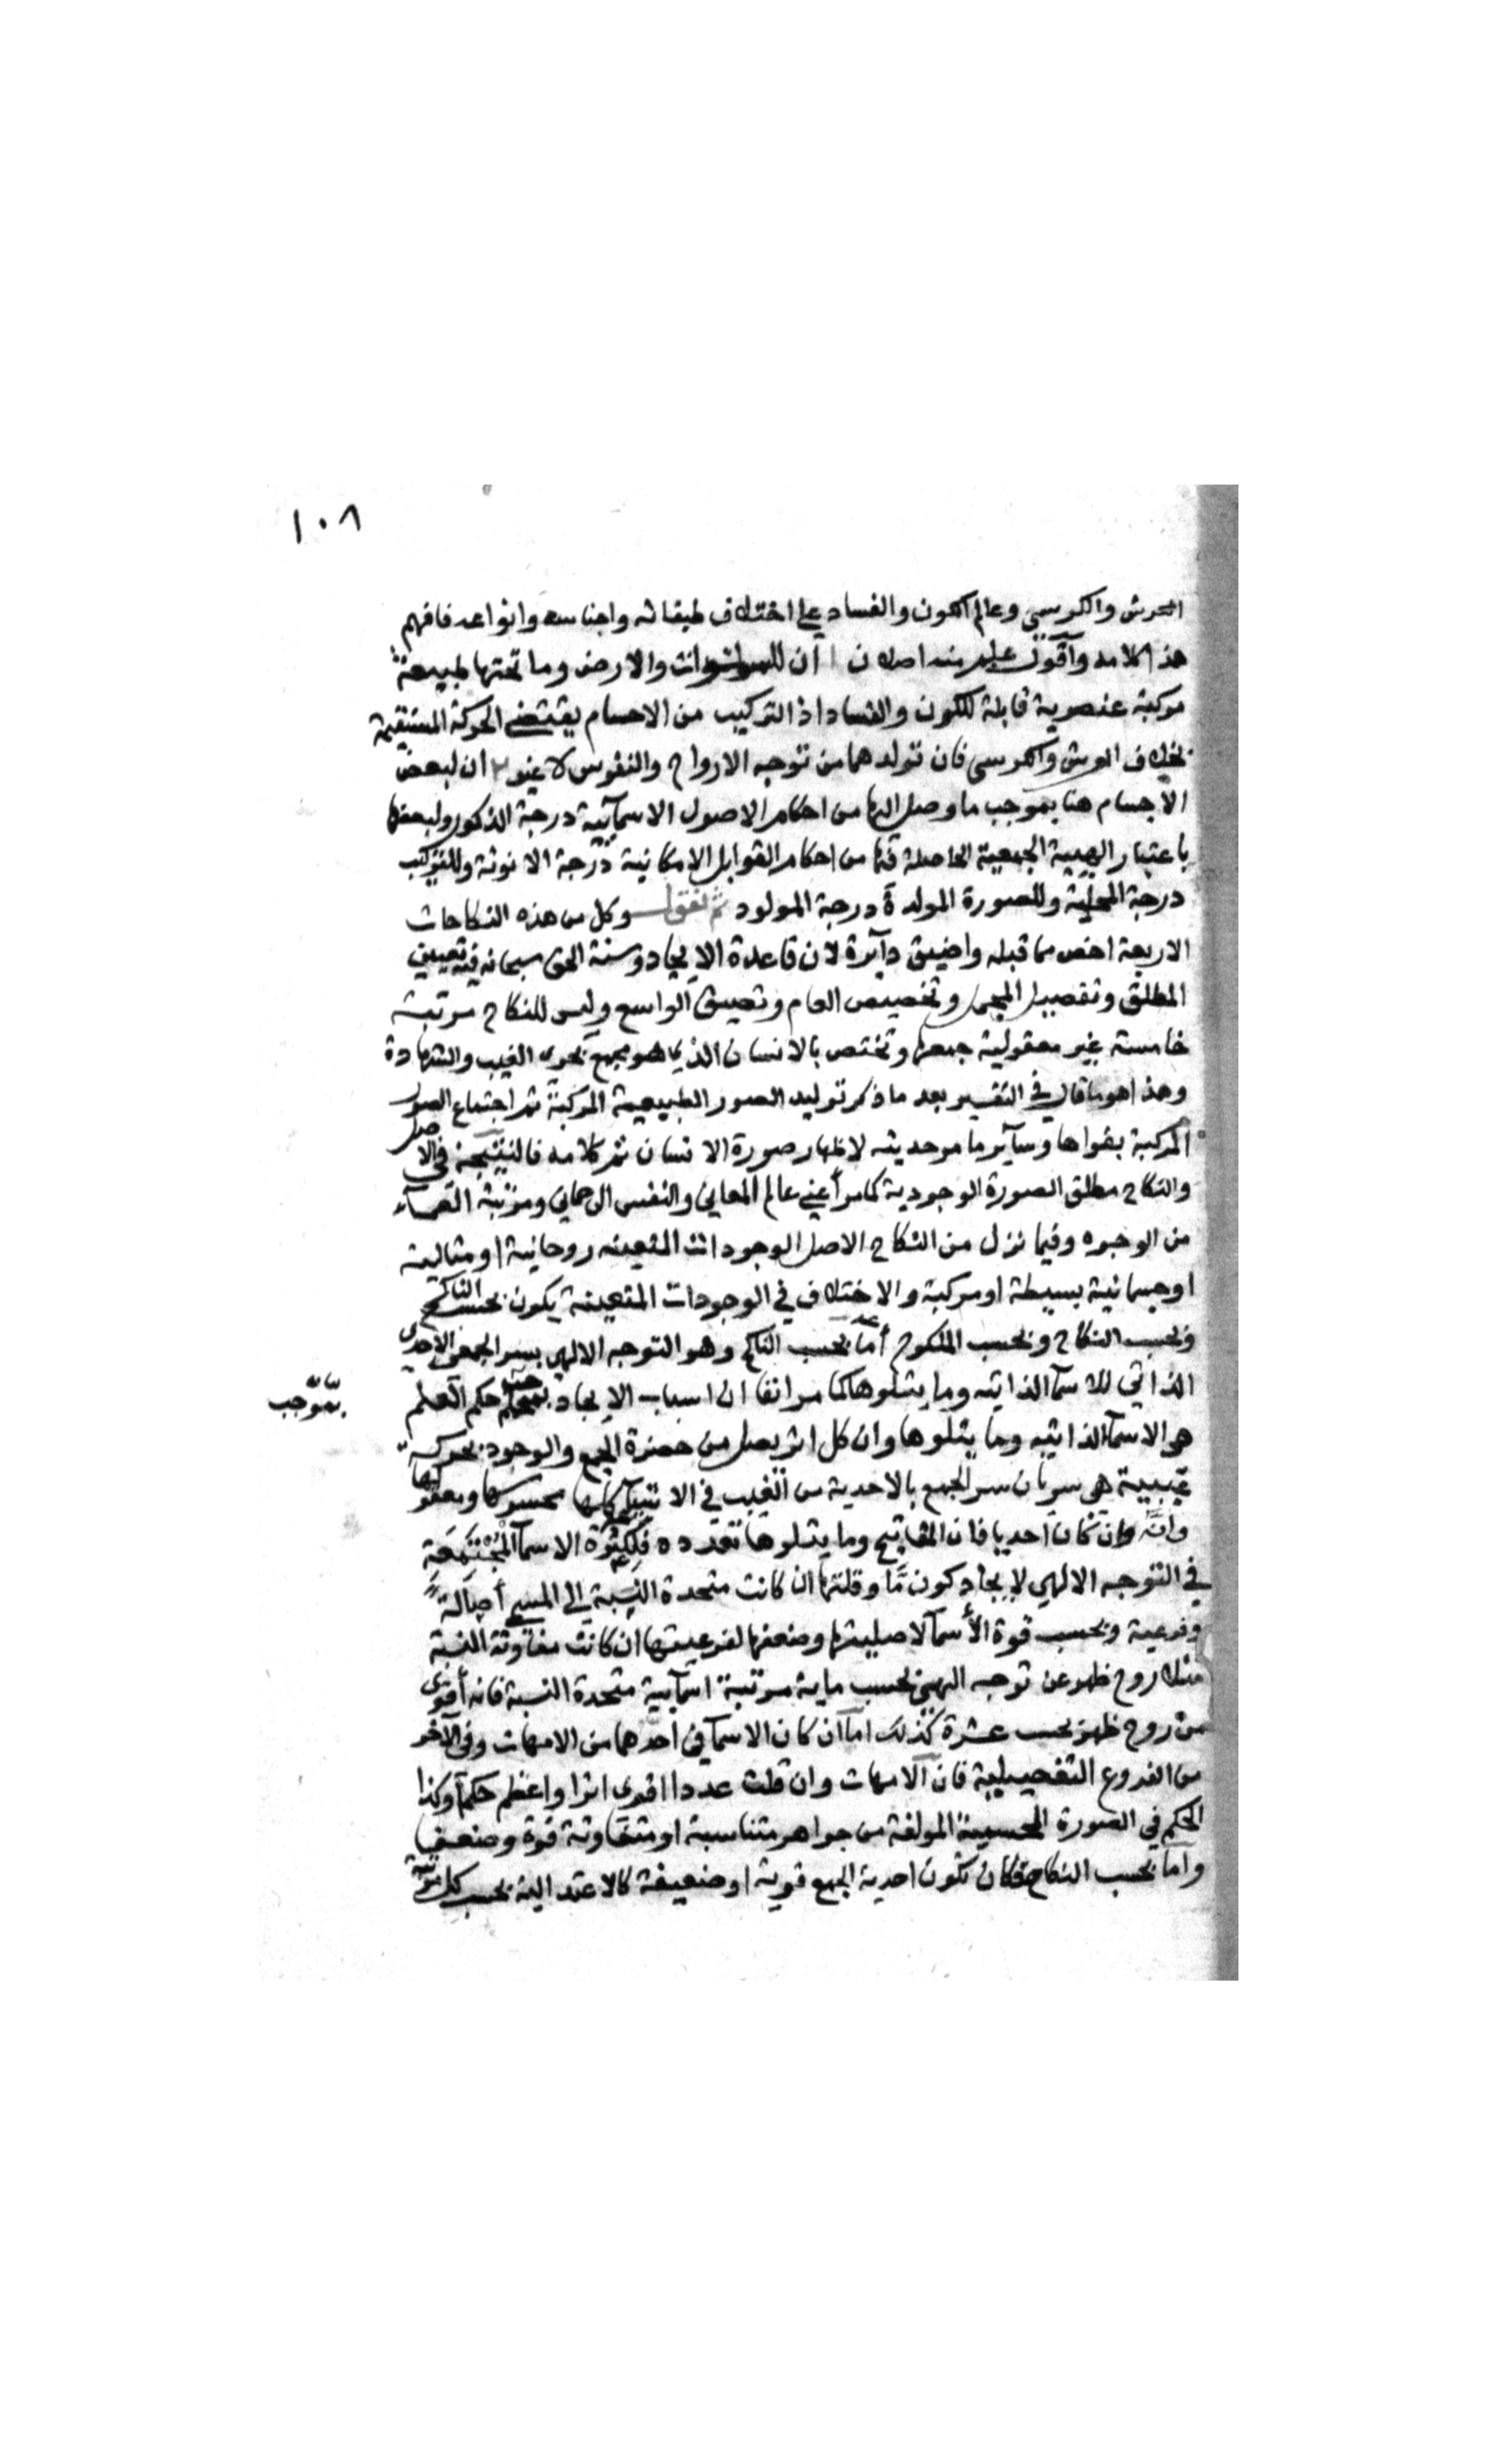 ١٠٨
العرش والكرسي وعالم الكون والفساد على اختلاف طبقاته واجناسه وانواعه فافهم
هذا كلامه وآقول علم منه اصلان ا ان للسموات والارض وما تحتها طبيعة
مركبة عنصرية قابلة للكون والفساد اذ التركيب من الاجسام يقتضي الحركة المستقيمة
بخلاف العرش والكرسي فان تولدهما من توجه الارواح والنفوس لا غير ٢ ان لبعض
الاجسام هنا بموجب ما وصل اليها من احكام الاصول الاسمآئية درجة الذكور ولبعضها
باعتبار الهيية الجمعية الحاصلة فيها من احكام القوابل الامكانية درجة الانوثة وللتركيب
درجة المحلية وللصورة المولدة درجة المولود ثم نقول وكل من هذه النكاحات
الاربعة اخص مما قبله واضيق دآيرة لان قاعدة الايجاد وسنة الحق سبحانه فيه تعيين
المطلق وتفصيل المجمل وتخصيص العام وتضييق الواسع وليس للنكاح مرتبة
خامسة غير معقولية جمعها وتختص بالانسان الذي هو مجمع بحري الغيب والشهادة
وهذا هو ما قال في التفسير بعد ما ذكر توليد الصور الطبيعية المركبة ثم اجتماع الصور
المركبة بقواها وسآير ما مر حديثه لاظهار صورة الانسان تم كلامه فالنتيجة في الاصل
والنكاح مطلق الصورة الوجودية كما مر أعني عالم المعاني والنفس الرحماني ومرتبة العمآء
من الوجوه وفيما نزل من النكاح الاصل الوجودات المتعينة روحانية او مثالية
او جسمانية بسيطة او مركبة والاختلاف في الوجودات المتعينة يكون بحسب الناكح
وبحسب النكاح وبحسب المنكوح أما بحسب الناكح وهو التوجه الالهي بسر الجمعي الاحدي
الذاتي للاسمآ الذاتيه وما يتلوها كما مر انفا ان اسباب الايجاد بموجب حكم العلم
بموجب
هو الاسمآ الذاتيه وما يتلوها وان كل اثر يصل من حضرة الجمع والوجود بحركة
غيبية هي سريان سر الجمع بالاحدية من الغيب في الاشيآ كلها محسوسها ومعقولها
وانه وان كان احديا فان المفاتيح وما يتلوها تعدده فلكثرة الاسمآ المجتمعة
في التوجه الالهي لايجاد كون مّا وقلتها ان كانت متحدة النسبة الى المسمى أصالة
وفرعية وبحسب قوة الأسمآ لاصليتها وضعفها لفرعيتها ان كانت متفاوتة النسبة
مثلا روح ظهر عن توجه الهي بحسب ماية مرتبة اسمآيية متحدة النسبة فانه أقوى
من روح ظهر بحسب عشرة كذلك اما ان كان الاسمآ في احدهما من الامهات وفي الآخر
من الفروع التفصيلية فان الامهات وان قلت عددا اقوى اثرا واعظم حكما وكذا
الحكم في الصورة الحسية المولفة من جواهر متناسبة او متفاوتة قوة وضعفا
وأما بحسب النكاح فكان تكون احدية الجمع قوية او ضعيفة كالاعتدالية بحسب كل مرتبة